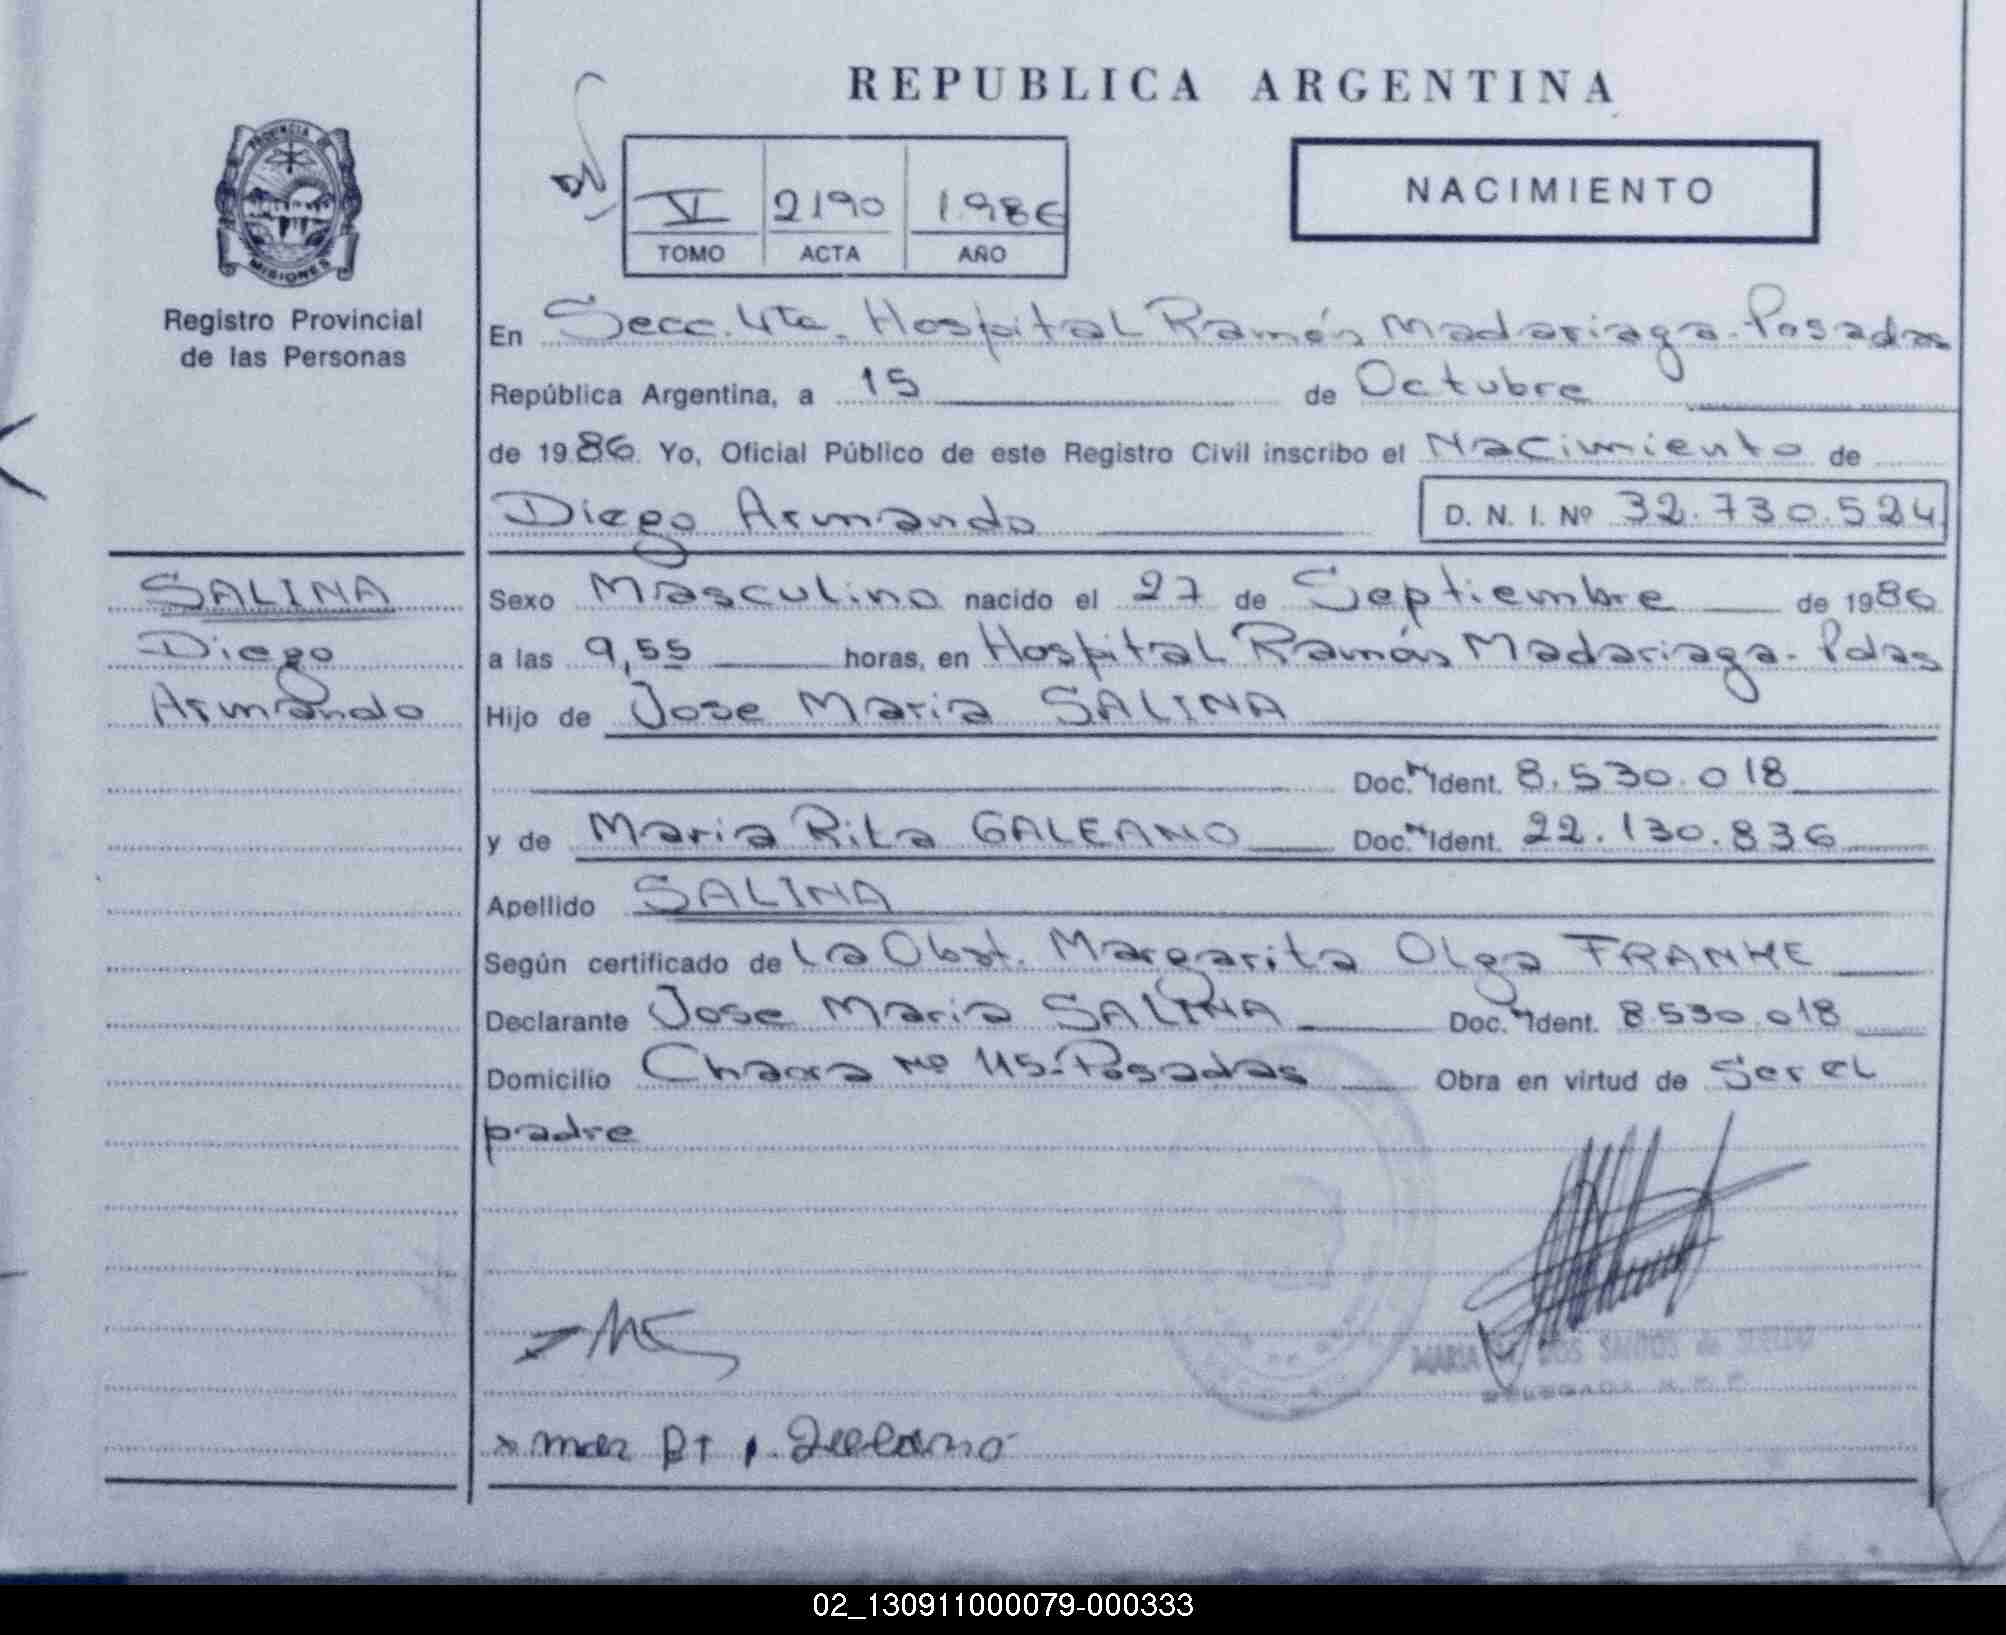 REPUBLICA ARGENTINA
PROVINCIA DE
MISIONES
Registro Provincial
de las Personas
VI 2190 1986
TOMO ACTA AÑO
NACIMIENTO
En Secc. 4ta. Hospital Ramón Madariaga - Posadas
República Argentina, a 15 de Octubre
de 1986. Yo, Oficial Público de este Registro Civil inscribo el Nacimiento de
Diego Armando D. N. I. Nº 32.730.524
SALINA
Diego
Armando
Sexo Masculino nacido el 27 de Septiembre de 1986
a las 9,55 horas, en Hospital Ramón Madariaga - Pdas
Hijo de Jose Maria SALINA
Doc. Ident. 8.530.018
y de Maria Rita GALEANO Doc. Ident. 22.130.836
Apellido SALINA
Según certificado de La Obst. Margarita Olga FRANKE
Declarante Jose Maria SALINA Doc. Ident. 8.530.018
Domicilio Chacra Nº 45 - Posadas Obra en virtud de Ser el
padre
MARIA DOS SANTOS de
DELEGADA
02_130911000079-000333